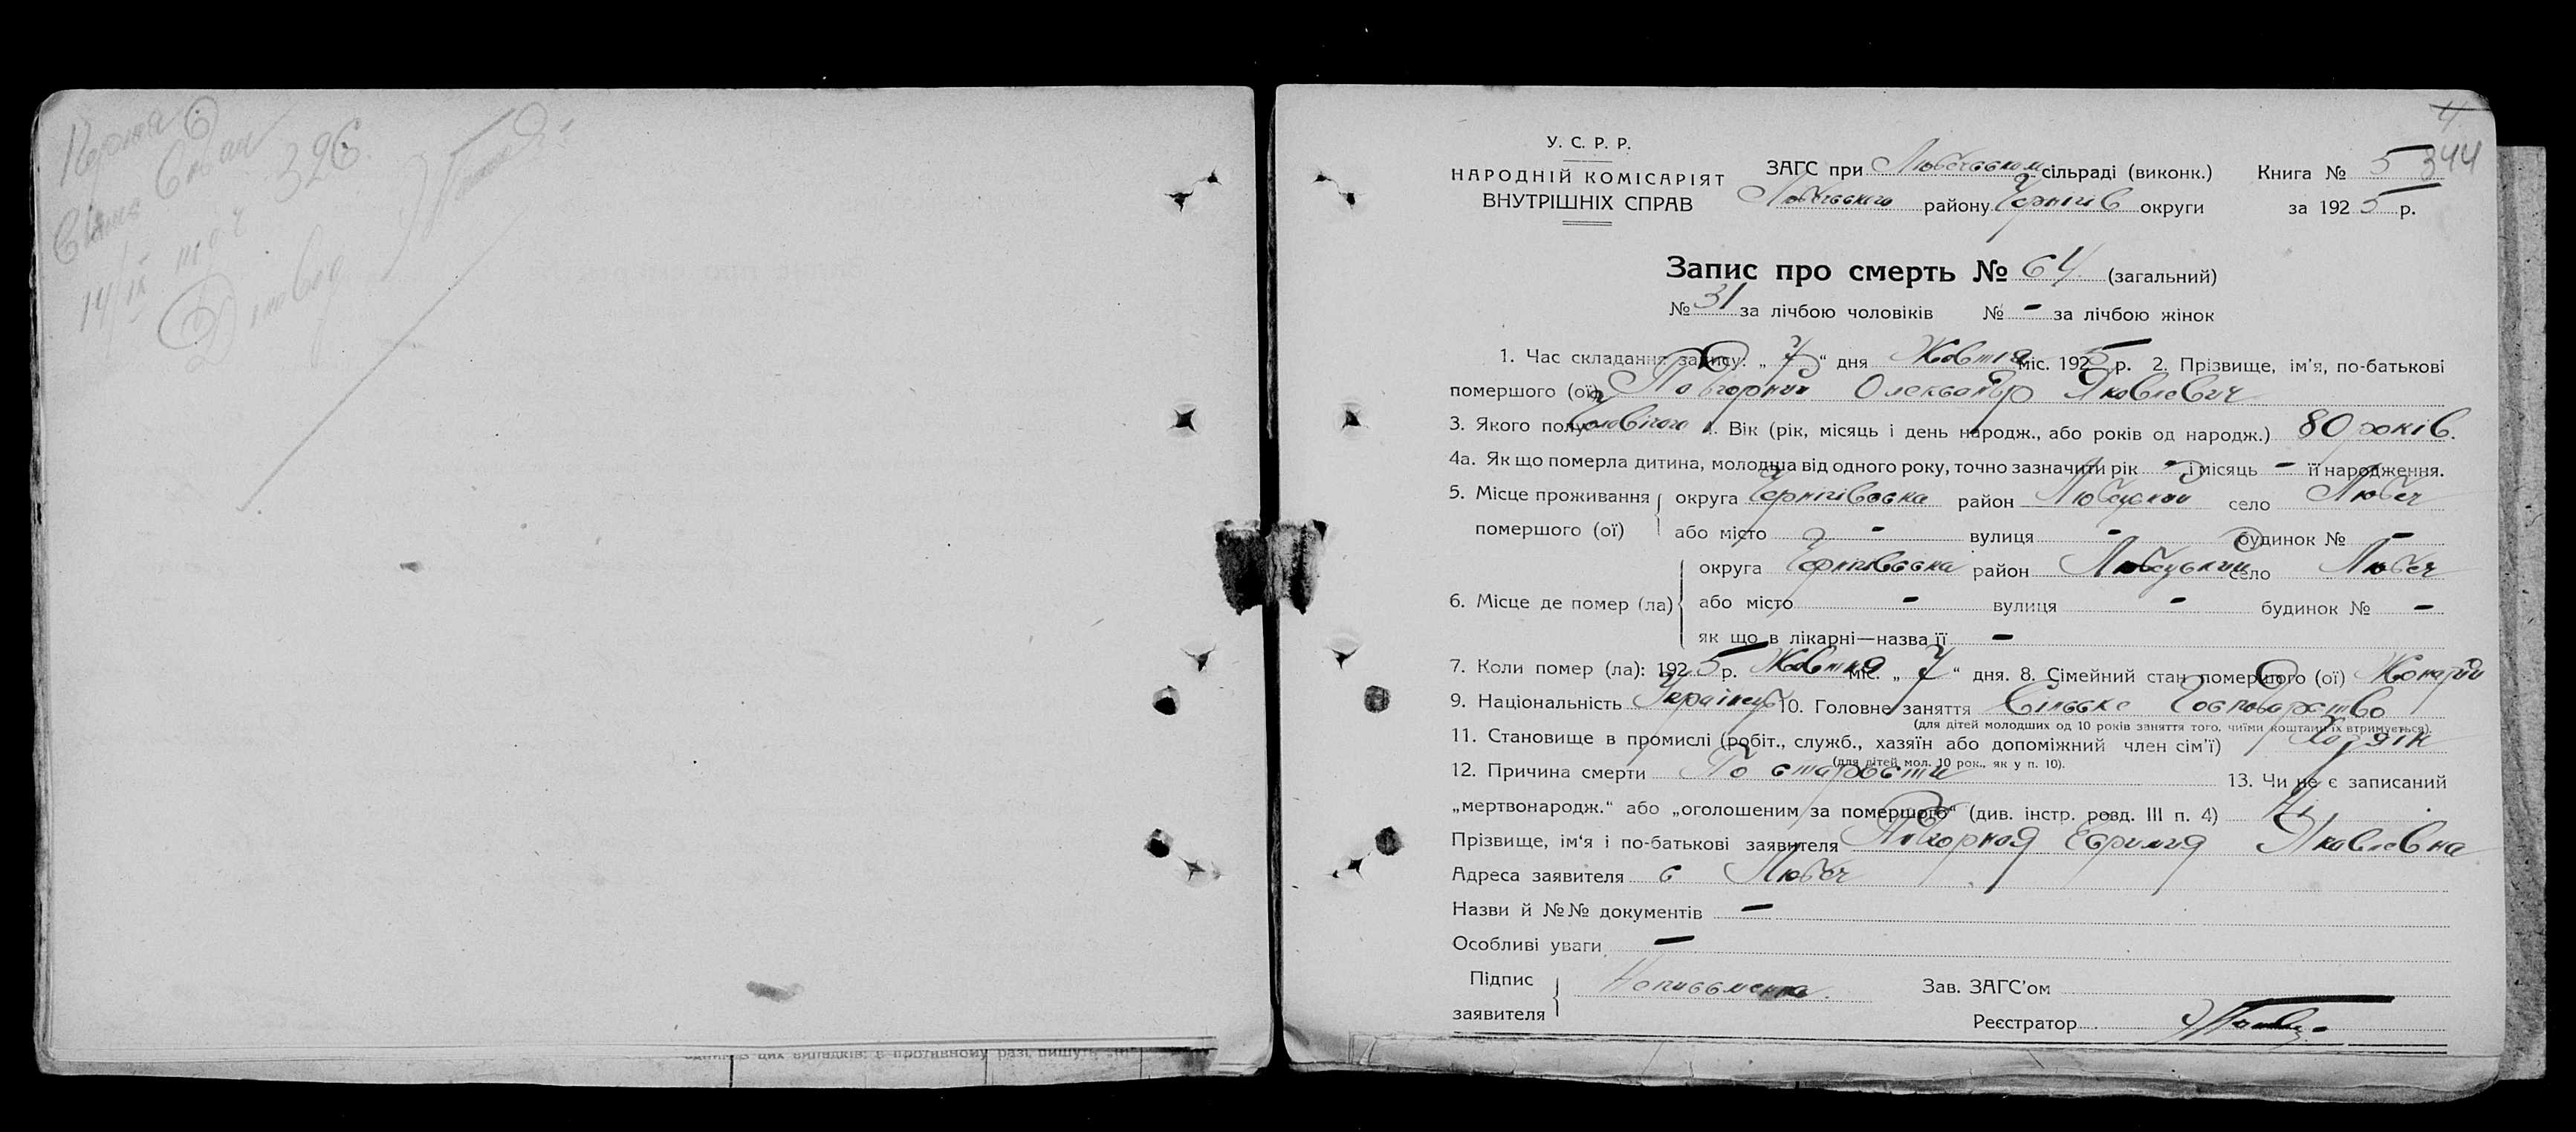 326
У. С. Р. Р.
НАРОДНІЙ КОМІСАРІЯТ
ВНУТРІШНІХ СПРАВ
ЗАГС при Любечськом сільраді (виконк.)
Любечського району Чернігів округи
Книга № 5 344
за 1925 р.
Запис про смерть № 64 (загальний)
№ 31 за лічбою чоловіків № - за лічбою жінок
1. Час складання запису: „ 7 “ дня Жовтня міс. 1925 р. 2. Прізвище, ім'я, по-батькові
помершого (ої) Олександр Яковлевич
3. Якого полу чоловічого 4. Вік (рік, місяць і день народж., або років од народж.) 80 років.
4а. Як що померла дитина, молодша від одного року, точно зазначити рік - і місяць - її народження.
5. Місце проживання помершого (ої) округа Чернігівська район Любецький село Любеч
або місто - вулиця - будинок № -
6. Місце де помер (ла) округа Чернігівська район Любецький село Любеч
або місто - вулиця - будинок № -
як що в лікарні—назва її -
7. Коли помер (ла): 1925 р. Жовтня міс. „ 7 “ дня. 8. Сімейний стан помершого (ої) Жонатий
9. Національність Українець 10. Головне заняття Сільське Господарство
(для дітей молодших од 10 років заняття того, чиїми коштами їх втримується).
11. Становище в промислі (робіт., служб., хазяїн або допоміжний член сім'ї) Хозяїн
(для дітей мол. 10 рок., як у п. 10).
12. Причина смерти По старости 13. Чи не є записаний
„мертвонародж.“ або „оголошеним за помершого“ (див. інстр. розд. III п. 4) Ні
Прізвище, ім'я і по-батькові заявителя Яковлевна
Адреса заявителя с Любеч
Назви й №№ документів -
Особливі уваги -
Підпис заявителя Неписьменна.
Зав. ЗАГС'ом
Реєстратор